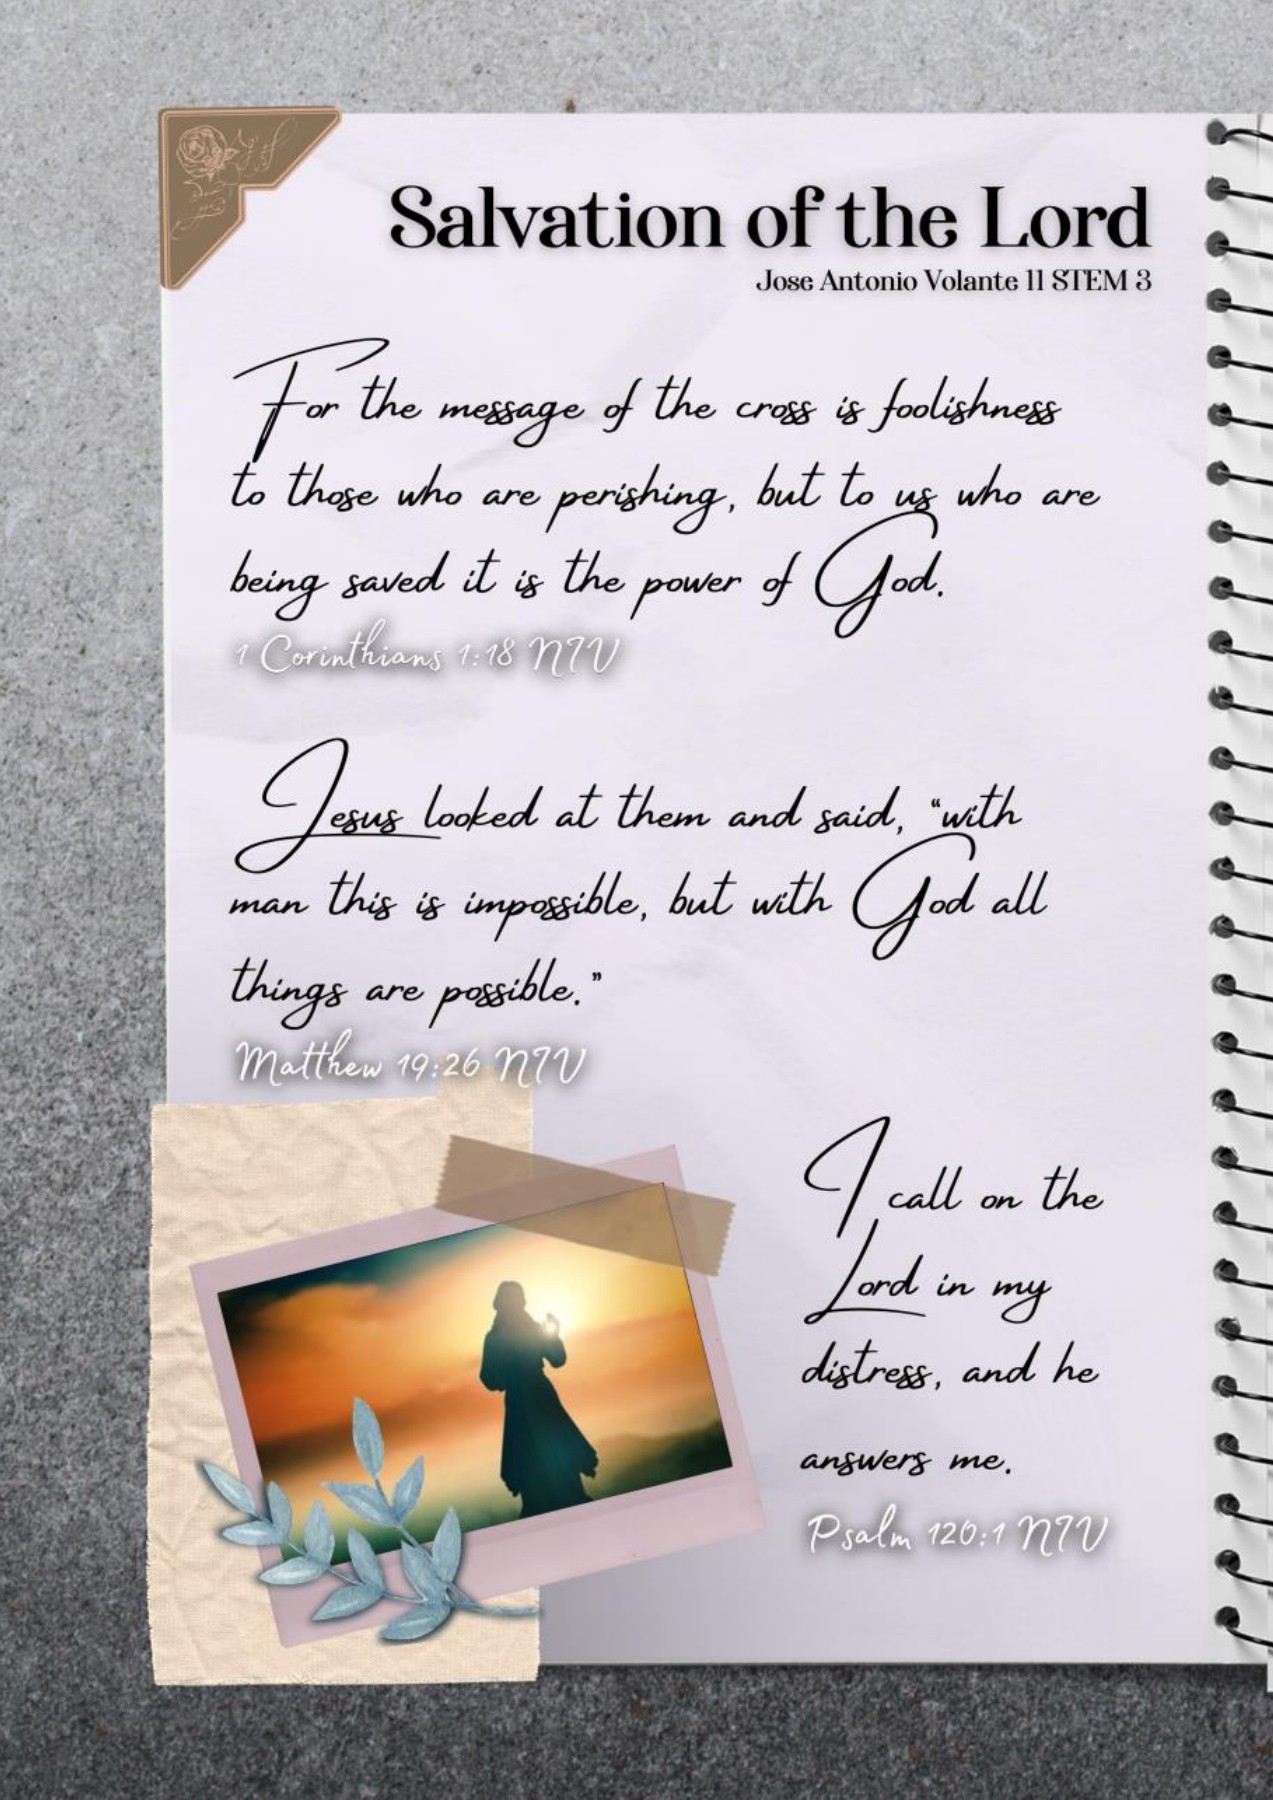 Salvation of the Lord
Jose Antonio Volante 11 STEM 3
For the message of the cross is foolishness
to those who are perishing, but to us who are
being saved it is the power of God.
1 Corinthians 1:18 NIV
Jesus looked at them and said, “with
man this is impossible, but with God all
things are possible.”
Matthew 19:26 NIV
I call on the
Lord in my
distress, and he
answers me.
Psalm 120:1 NIV